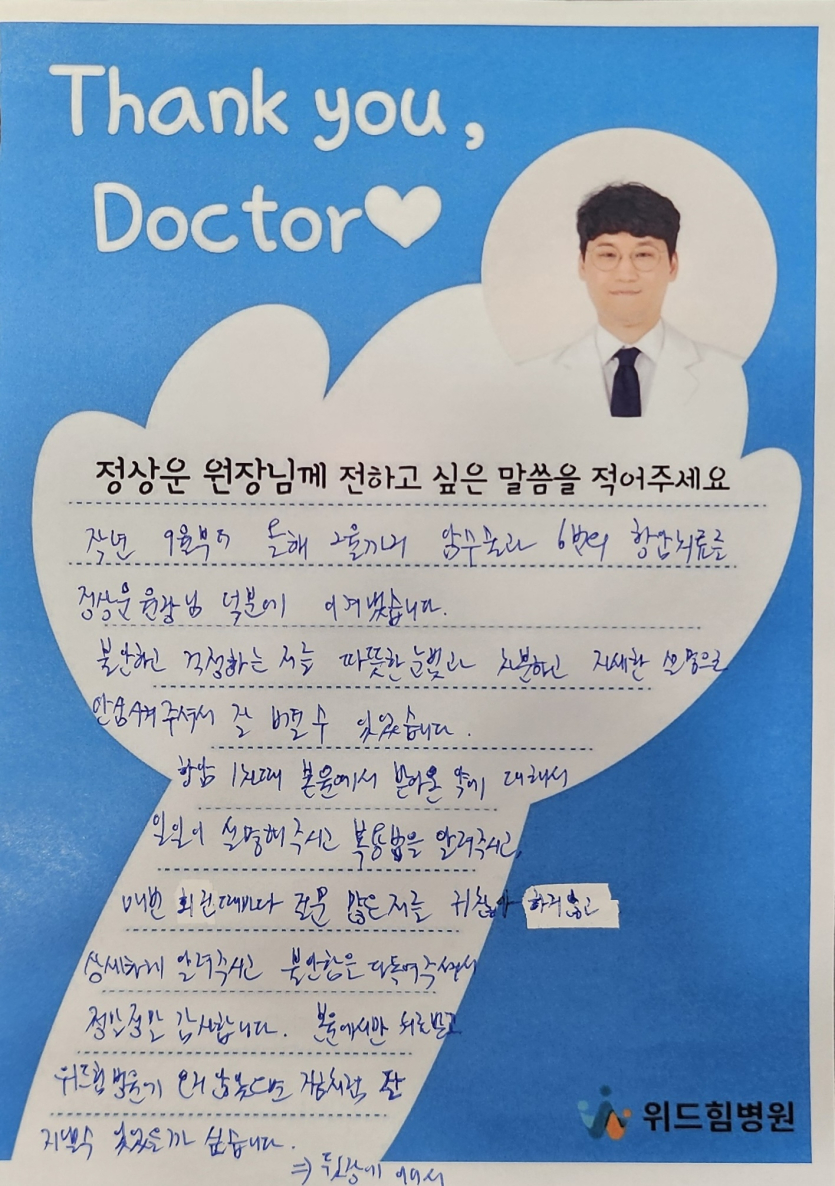 Thank you,
Doctor
정상운 원장님께 전하고 싶은 말씀을 적어주세요
작년 9월부터 올해 2월까지 암수술과 6번의 항암치료를
정상운 원장님 덕분에 이겨냈습니다.
불안하고 걱정하는 저를 따뜻한 눈빛과 차분하고 자세한 설명으로
안심시켜주셔서 잘 버틸 수 있었습니다.
항암 1차때 본원에서 받아온 약에 대해서
일일이 설명해주시고 복용법을 알려주시고,
매번 회진때마다 질문 많은 저를 귀찮아 하지않고
상세하게 알려주시고 불안함을 다독여주셔서
정말정말 감사합니다. 본원에서만 치료받고
위드힘병원에 오지 않았으면 지금처럼 잘
지낼수 있었을까 싶습니다.
⇒ 뒷장에 이어서
위드힘병원